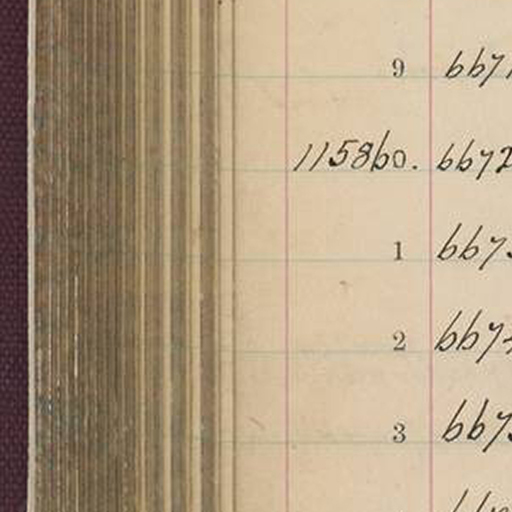 9 6671
115860. 6672
1 667
2 667
3 667